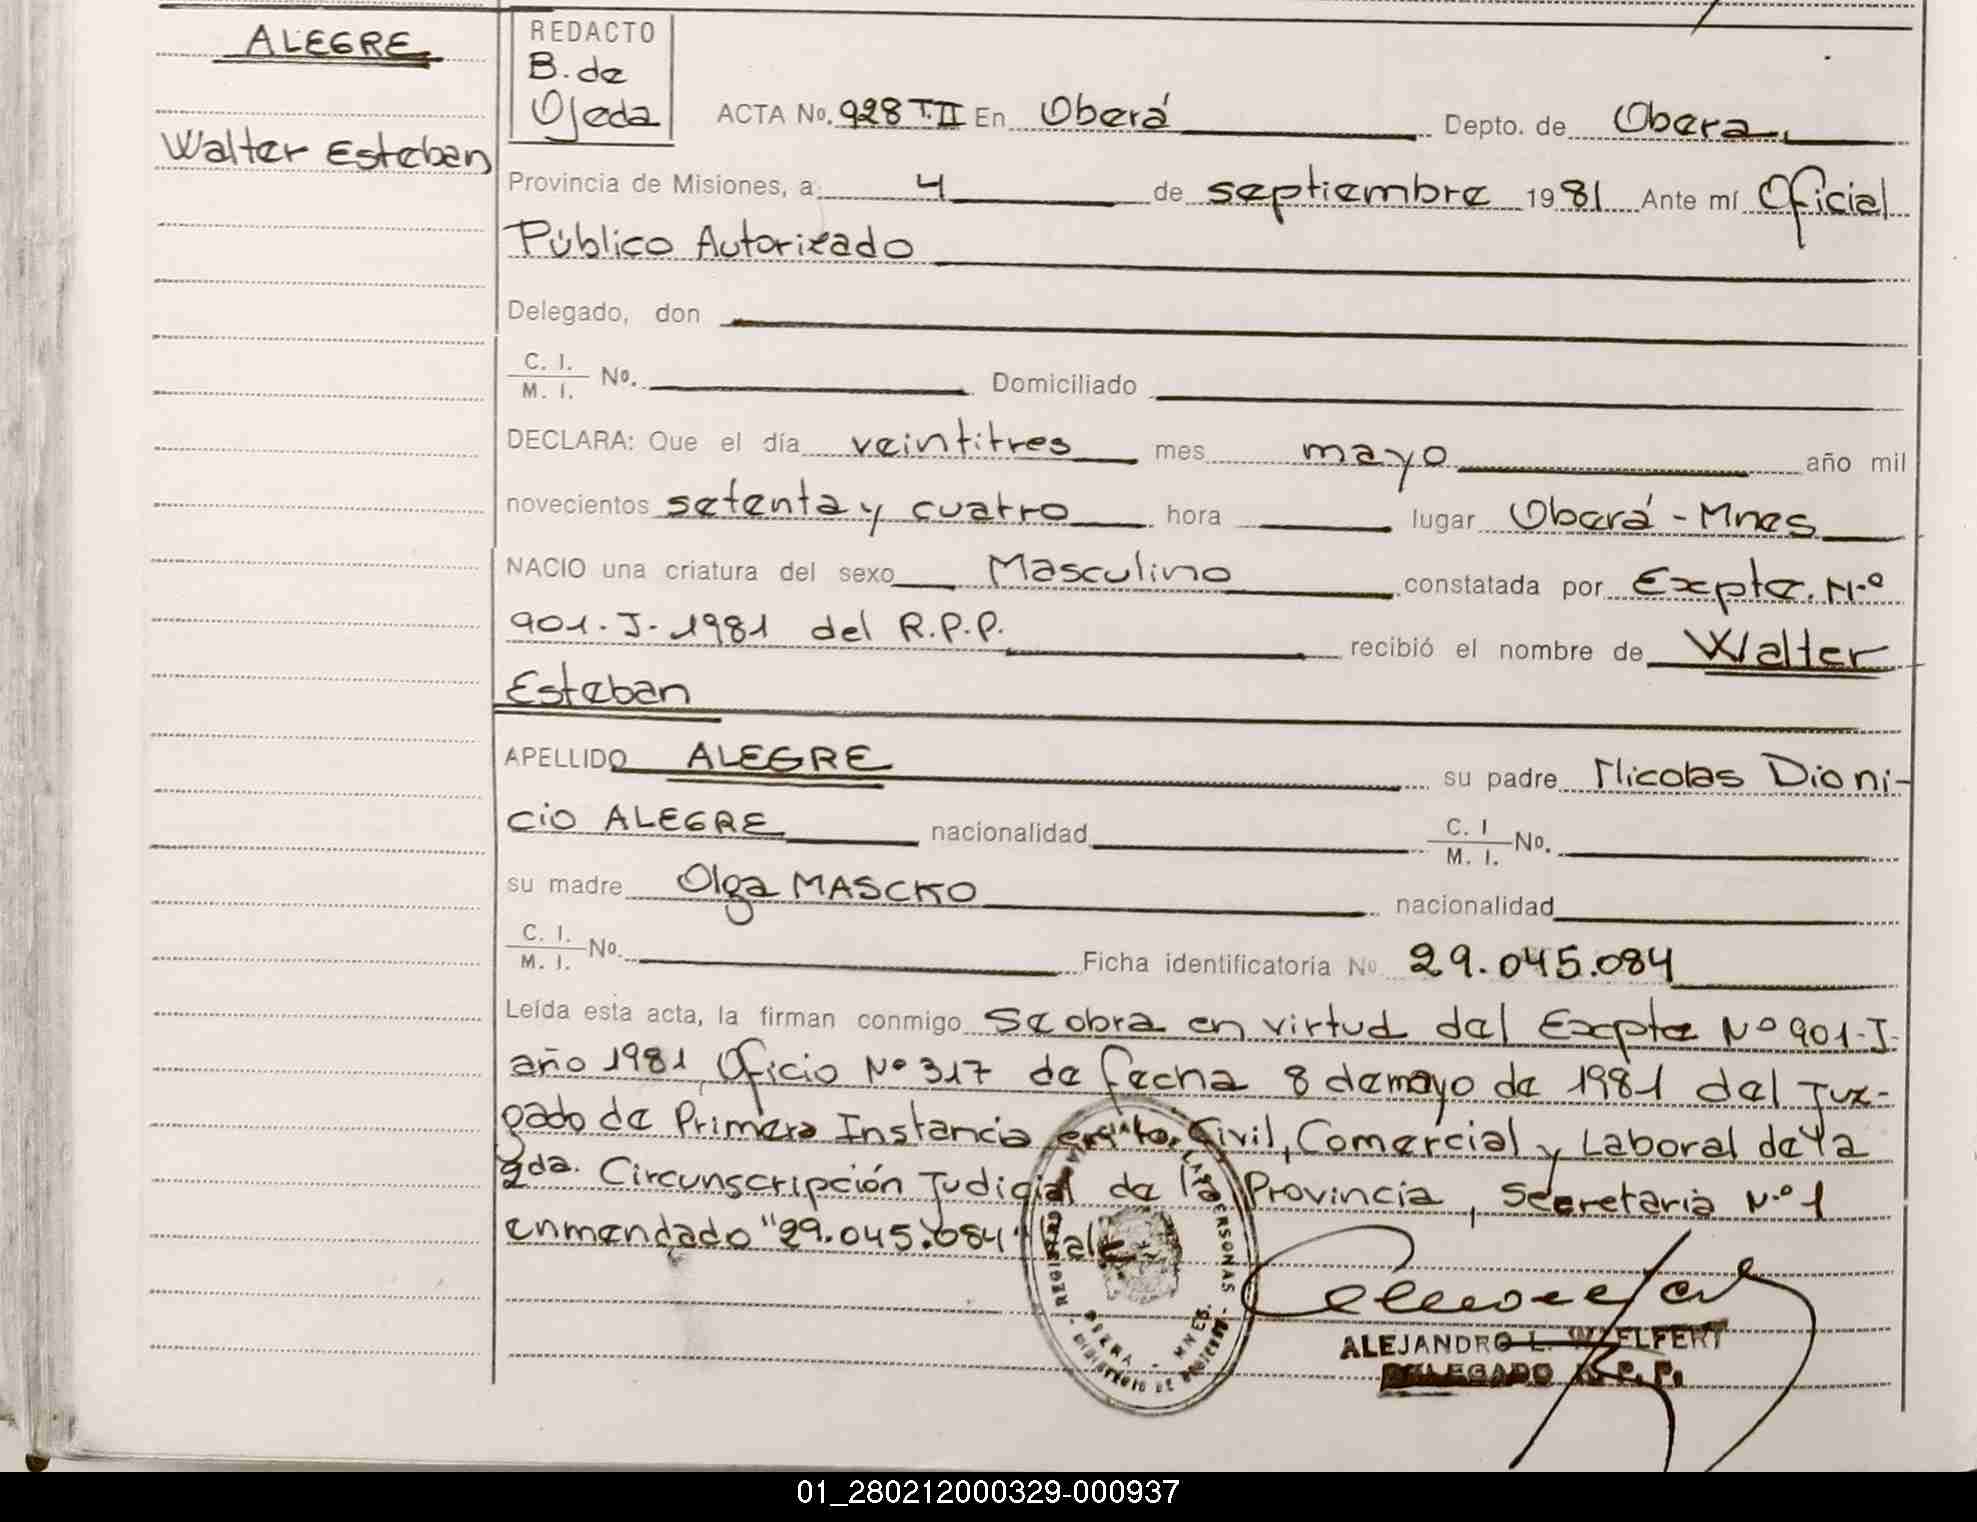 ALEGRE
Walter Esteban
REDACTO
B. de
Ojeda
ACTA No. 928 T.II En Oberá Depto. de Obera
Provincia de Misiones, a 4 de septiembre 1981 Ante mí Oficial
Público Autorizado
Delegado, don
C. I. / M. I. No. Domiciliado
DECLARA: Que el día veintitres mes mayo año mil
novecientos setenta y cuatro hora lugar Oberá - Mnes
NACIO una criatura del sexo Masculino constatada por Expte. N.º
901-J-1981 del R.P.P. recibió el nombre de Walter
Esteban
APELLIDO ALEGRE su padre Nicolas Dioni-
cio ALEGRE nacionalidad C. I / M. I. No.
su madre Olga MASCKO nacionalidad
C. I. / M. I. No. Ficha identificatoria No 29.045.084
Leída esta acta, la firman conmigo Se obra en virtud del Expte Nº 901-J-
año 1981, Oficio Nº 317 de fecha 8 de mayo de 1981 del Juz-
gado de Primera Instancia en lo Civil, Comercial y Laboral de la
2da. Circunscripción Judicial de la Provincia, Secretaria N.º 1
enmendado "29.045.084" Vale
REGISTRO PERSONAS
OBERA - MNES.
ALEJANDRO L. WELFERT
DELEGADO R.P.P.
01_280212000329-000937